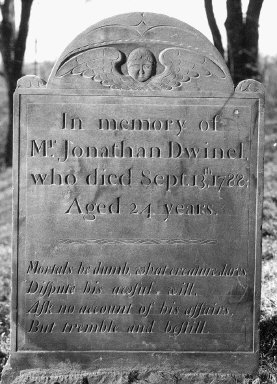 In memory of
Mr. Jonathan Dwinel
who died Sept. 13th 1788,
Aged 24 years.
Mortals be dumb, what creature dares
Dispute his aweful will,
Ask no account of his affairs,
But tremble and be still.